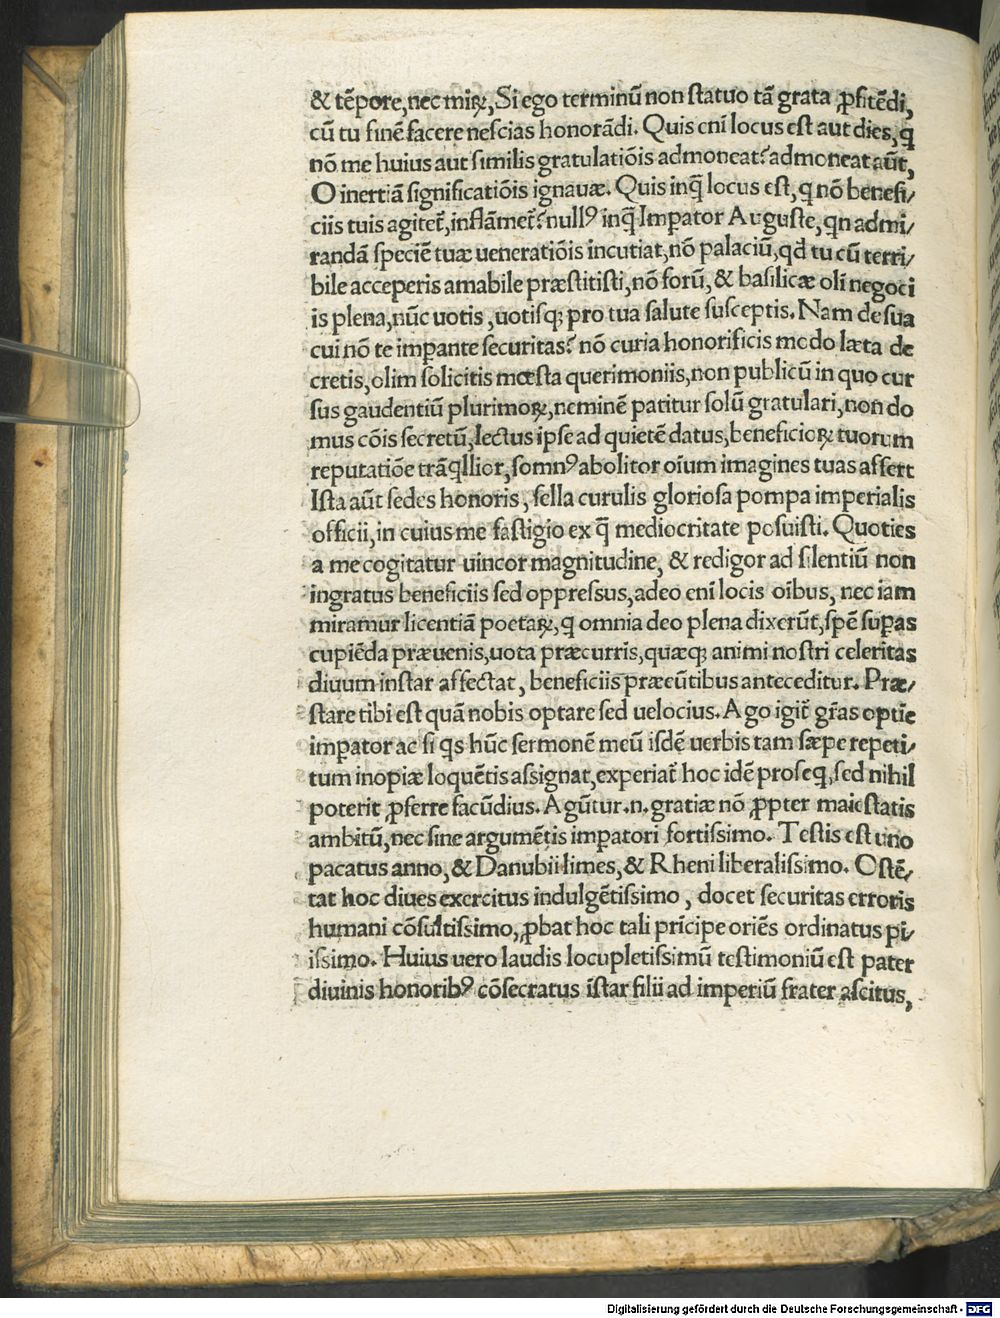 & tēpore, nec miꝝ, Si ego terminū non ſtatuo tā grata ꝓfitēdi,
cū tu finē facere neſcias honorādi. Quis eni locus eſt aut dies, ꝙ
nō me huius aut ſimilis gratulatiōis admoneat? admoneat aūt,
O inertiā ſignificatiōis ignauæ. Quis inq̄ locus eſt, ꝙ nō benefi/
ciis tuis agitet̄, inflāmet̄? nullꝰ inq̄ Imꝑator Auguſte, qn admi/
randā ſpeciē tuæ ueneratiōis incutiat, nō palaciū, qd tu cū terri/
bile acceperis amabile præſtitiſti, nō forū, & baſilicæ oli negoci
is plena, nūc uotis, uotiſqꝫ pro tua ſalute ſuſceptis. Nam de ſua
cui nō te imꝑante ſecuritas? nō curia honorificis modo læta de
cretis, olim ſolicitis mœſta querimoniis, non publicū in quo cur
ſus gaudentiū plurimoꝝ, neminē patitur ſolū gratulari, non do
mus cōis ſecretū, lectus ipſe ad quietē datus, beneficioꝝ tuorum
reputatiōe trāqllior, ſomnꝰ abolitor oīum imagines tuas affert
Iſta aūt ſedes honoris, ſella curulis glorioſa pompa imperialis
officii, in cuius me faſtigio ex q̄ mediocritate poſuiſti. Quoties
a me cogitatur uincor magnitudine, & redigor ad ſilentiū non
ingratus beneficiis ſed oppreſſus, adeo eni locis oībus, nec iam
miramur licentiā poetaꝝ, ꝙ omnia deo plena dixerūt, ſpē ſuꝑas
cupiēda præuenis, uota præcurris, quæqꝫ animi noſtri celeritas
diuum inſtar affectat, beneficiis præeūtibus anteceditur. Præ/
ſtare tibi eſt quā nobis optare ſed uelocius. Ago igit̄ gr̄as optīe
imꝑator ac ſi qs hūc ſermonē meū iſdē uerbis tam ſæpe repeti/
tum inopiæ loquētis aſſignat, experiat̄ hoc idē proſeq, ſed nihil
poterit ꝓferre facūdius. Agūtur .n. gratiæ nō ꝓpter maieſtatis
ambitū, nec ſine argumētis imꝑatori fortiſſimo. Teſtis eſt uno
pacatus anno, & Danubii limes, & Rheni liberaliſſimo. Oſtē/
tat hoc diues exercitus indulgētiſſimo, docet ſecuritas erroris
humani cōſultiſſimo, ꝓbat hoc tali prīcipe oriēs ordinatus pi/
iſſimo. Huius uero laudis locupletiſſimū teſtimoniū eſt pater
diuinis honoribꝰ cōſecratus īſtar filii ad imperiū frater aſcitus,
Digitalisierung gefördert durch die Deutsche Forschungsgemeinschaft - DFG